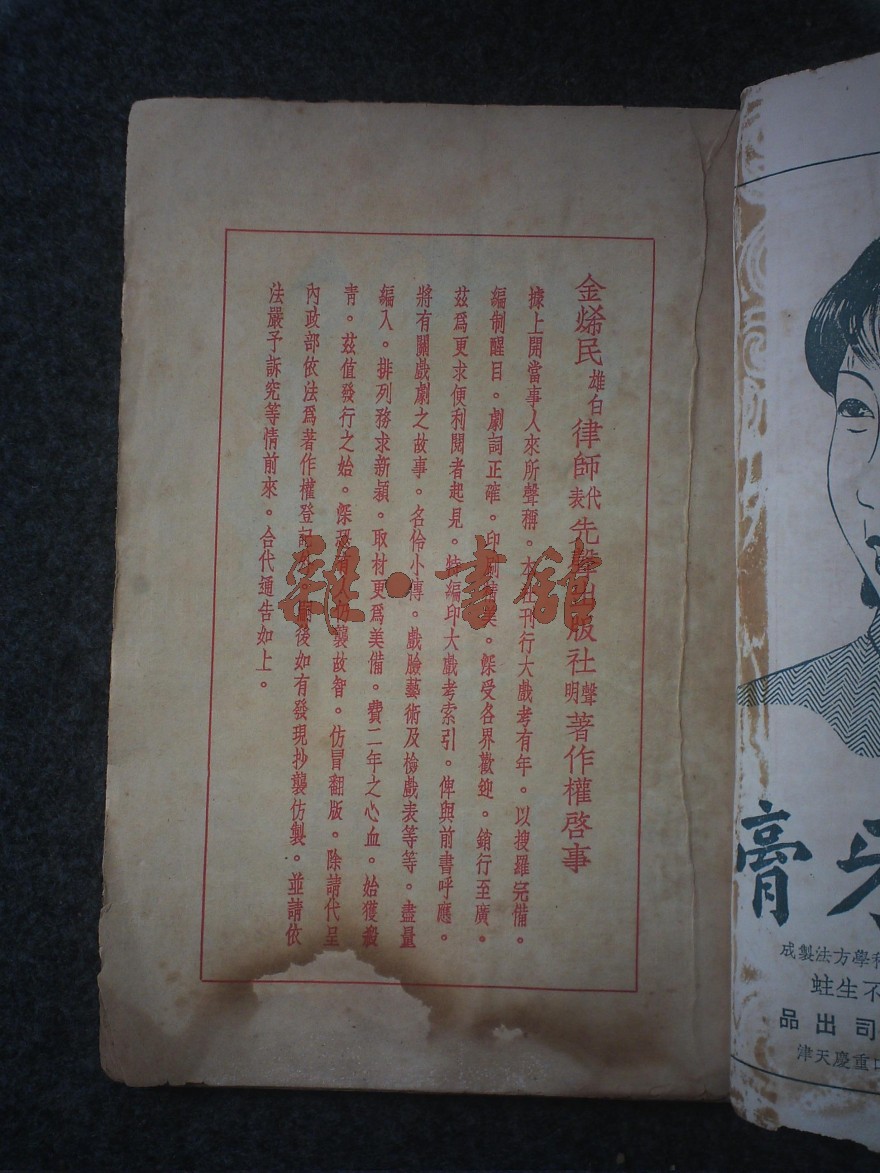 金煥民雄白律師代表先聲出版社聲明著作權啓事
據上開當事人來所聲稱。本社刊行大戲考有年。以搜羅完備。
編制醒目。劇詞正確。印刷精美。深受各界歡迎。銷行至廣。
茲爲更求便利閱者起見。特編印大戲考索引。俾與前書呼應。
將有關戲劇之故事。名伶小傳。戲臉藝術及檢戲表等等。盡量
編入。排列務求新穎。取材更爲美備。費二年之心血。始獲殺
靑。茲値發行之始。深恐有人抄襲故智。仿冒翻版。除請代呈
內政部依法爲著作權登記外。嗣後如有發現抄襲仿製。並請依
法嚴予訴究等情前來。合代通告如上。
雜·書舘
膏牙
成製法方學科
蛀生不
品出司
津天慶重口